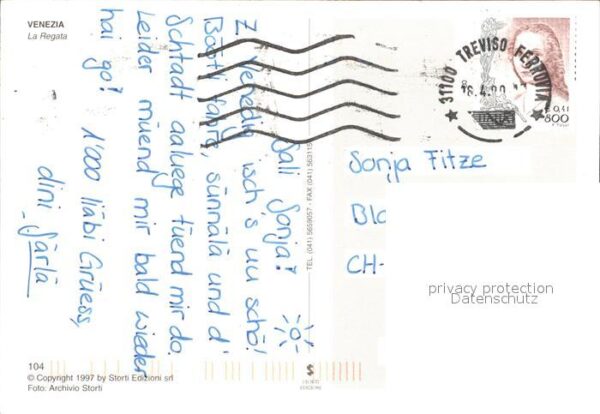 VENEZIA
La Regata
Sali Sonja!
Z Venedig isch's uu schö!
Böötli fahre, sünnälä und d'
Schtadt aaluege tüend mir do.
Leider müend mir bald wieder
hai go!
1'000 liäbi Grüess,
dini Särlä
104
© Copyright 1997 by Storti Edizioni srl
Foto: Archivio Storti
TEL. (041) 5659057 - FAX (041) 5631157
STORTI
EDIZIONI
31100 TREVISO FERROVIA
€ 0,41
800
Sonja Fitze
CH-
privacy protection
Datenschutz